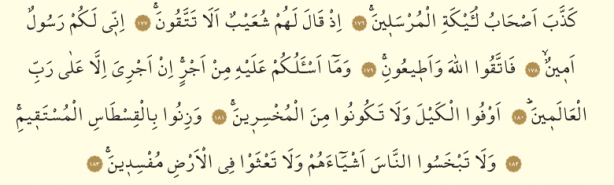 كَذَّبَ اَصْحَابُ لْـَٔيْكَةِ الْمُرْسَل۪ينَۚ ﴿١٧٦﴾ اِذْ قَالَ لَهُمْ شُعَيْبٌ اَلَا تَتَّقُونَۚ ﴿١٧٧﴾ اِنّ۪ى لَكُمْ رَسُولٌ
اَم۪ينٌۙ ﴿١٧٨﴾ فَاتَّقُوا اللّٰهَ وَاَط۪يعُونِۚ ﴿١٧٩﴾ وَمَٓا اَسْـَٔلُكُمْ عَلَيْهِ مِنْ اَجْرٍۚ اِنْ اَجْرِىَ اِلَّا عَلٰى رَبِّ
الْعَالَم۪ينَۜ ﴿١٨٠﴾ اَوْفُوا الْكَيْلَ وَلَا تَكُونُوا مِنَ الْمُخْسِر۪ينَۚ ﴿١٨١﴾ وَزِنُوا بِالْقِسْطَاسِ الْمُسْتَق۪يمِۚ
﴿١٨٢﴾ وَلَا تَبْخَسُوا النَّاسَ اَشْيَٓاءَهُمْ وَلَا تَعْثَوْا فِى الْاَرْضِ مُفْسِد۪ينَۚ ﴿١٨٣﴾